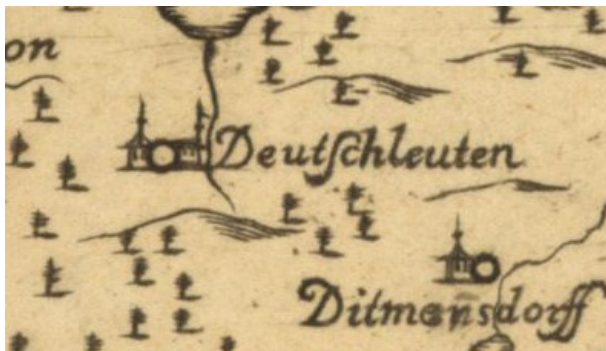 on
Deutſchleuten
Ditmansdorff